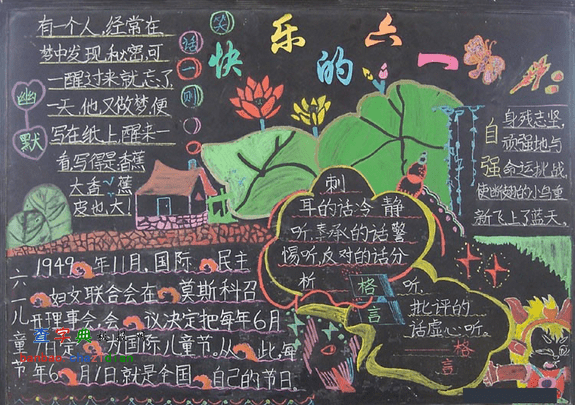 快乐的六一
笑
话
一
则
幽默
有一个人,经常在
梦中发现秘密,可
一醒过来就忘了
一天,他又做梦,便
写在纸上,醒来一
看,写得是:香蕉
大香蕉
皮也大!
自强
身残志坚,
顽强地与
命运挑战
新飞上了蓝天。
刺
耳的话冷静
听,奉承的话警
惕听,反对的话分
析听。
格言
批评的
话虚心听。
格言
六一儿童节
1949年11月,国际民主
妇女联合会在莫斯科召
开理事会,会议决定把每年6月
1日定为国际儿童节。从此,每
年6月1日,就是全国自己的节日。
查字典